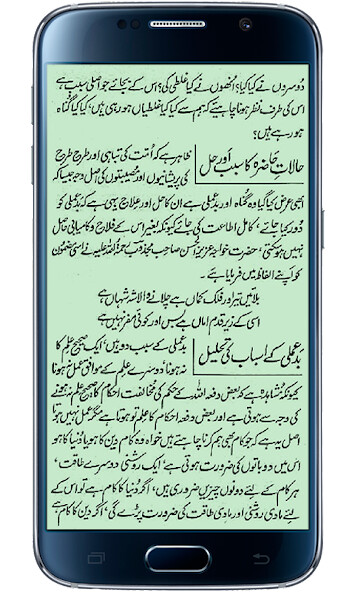 دوسروں نے کیا کیا؟ انھوں نے کیا غلطی کی؟ اس کے بجائے جو اصلی سبب ہے
اس کی طرف نظر ہونا چاہیئے کہ ہم سے کیا کیا غلطیاں ہو رہی ہیں، کیا کیا گناہ
ہو رہے ہیں؟
حالات حاضرہ کا سبب اور حل
ظاہر ہے کہ اُمت کی تباہی اور طرح طرح
کی پریشانیوں اور مصیبتوں کی اصل وجہ جیسا کہ
ابھی عرض کیا گیا وہ گناہ اور بدعملی ہے ان کا حل اور علاج یہی ہے کہ بدعملی کو
دُور کیا جائے، کامل اطاعت کی جائے کیونکہ بغیر اس کے فلاح و کامیابی حاصل
نہیں ہو سکتی، حضرت خواجہ عزیز الحسن صاحب مجذوب رحمۃ اللہ علیہ نے اسی مضمون
کو اپنے الفاظ میں فرمایا ہے۔
بلائیں تیر اور فلک کماں ہے چلانے والا شہ شہاں ہے
اسی کے زیر قدم اماں ہے بس اور کوئی مفر نہیں ہے
بدعملی کے اسباب کی تحلیل
بدعملی کے سبب دو ہیں، ایک صحیح علم کا
نہ ہونا، دوسرے علم کے موافق عمل نہ ہونا
کیونکہ مشاہدہ ہے کہ بعض دفعہ اللہ کے حکم کی مخالفت احکام کا صحیح علم نہ ہونے
کی وجہ سے ہوتی ہے اور بعض دفعہ احکام کا علم تو ہوتا ہے مگر عمل نہیں ہوتا
اصل یہ ہے کہ جو کام بھی ہم کرنا چاہتے ہیں خواہ وہ کام دین کا ہو یا دُنیا کا ہو
اس میں دو باتوں کی ضرورت ہوتی ہے، ایک روشنی دوسرے طاقت،
ہر کام کے لئے دونوں چیزیں ضروری ہیں، اگر دُنیا کا کام ہے تو اس کے
لئے مادی روشنی اور مادی طاقت کی ضرورت پڑے گی، اگر دین کا کام ہے